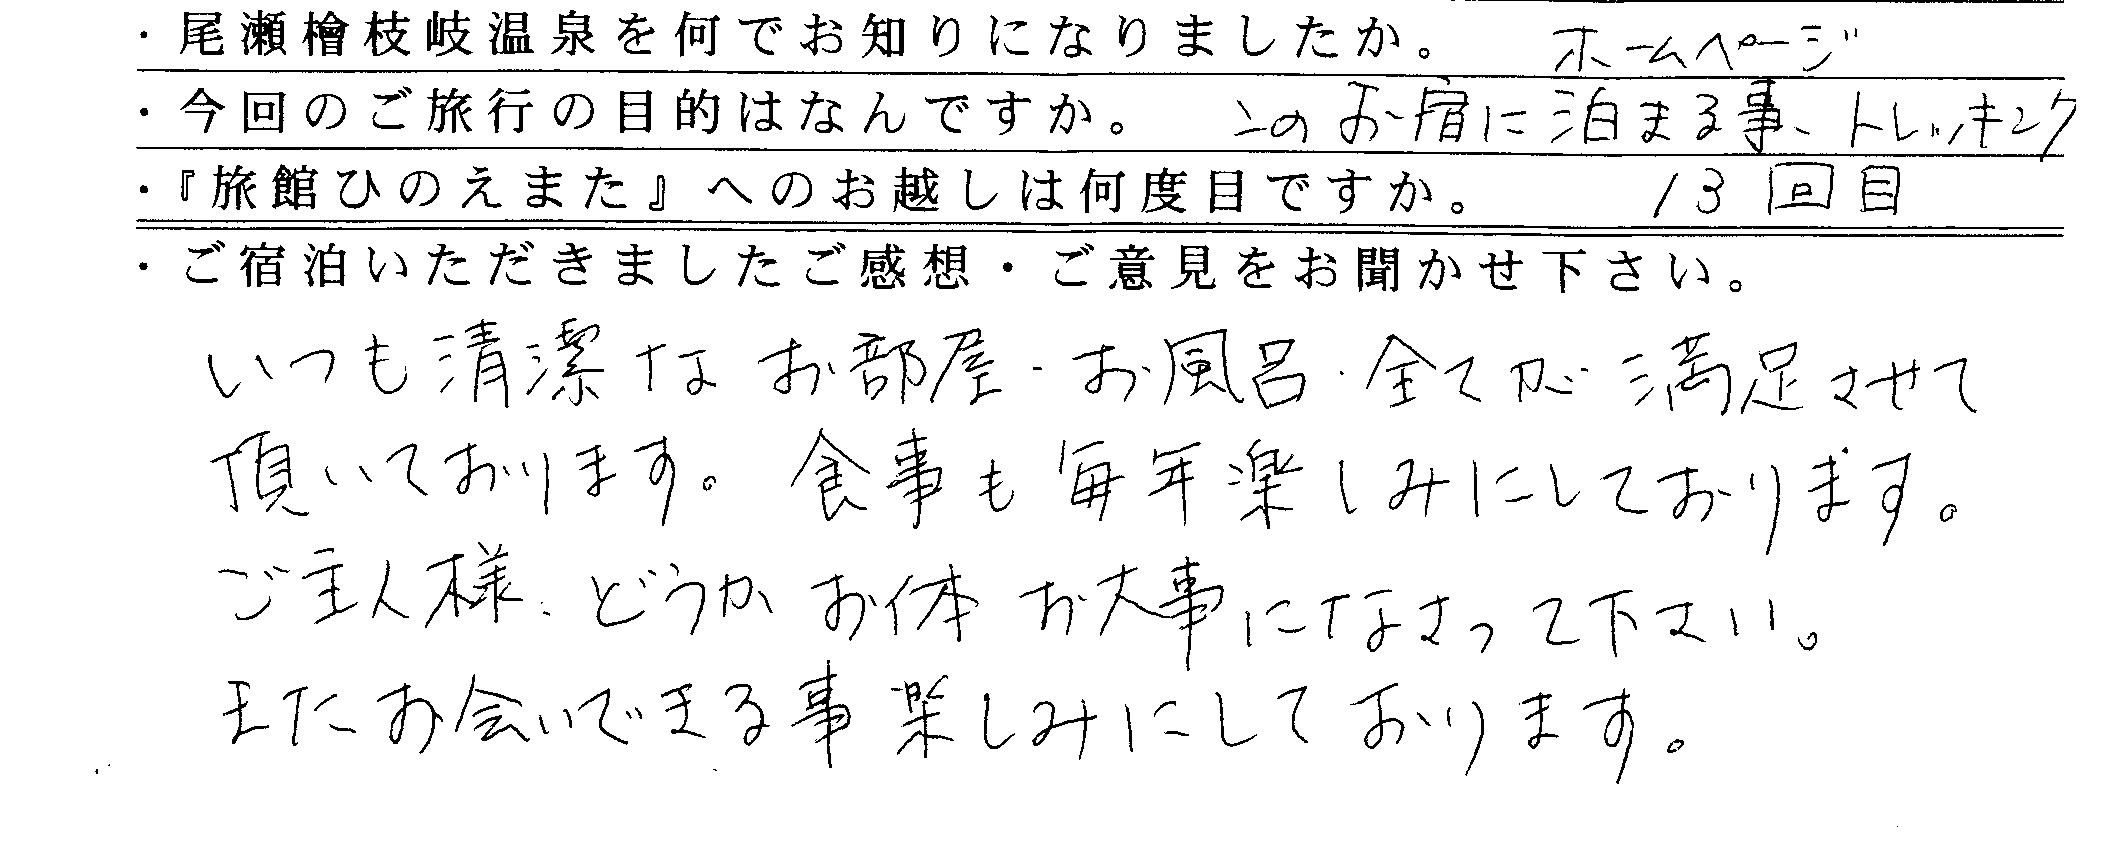 ・尾瀬檜枝岐温泉を何でお知りになりましたか。 ホームページ
・今回のご旅行の目的はなんですか。 このお宿に泊まる事、トレッキング
・『旅館ひのえまた』へのお越しは何度目ですか。 13回目
・ご宿泊いただきましたご感想・ご意見をお聞かせ下さい。
いつも清潔なお部屋・お風呂・全てが満足させて
頂いております。食事も毎年楽しみにしております。
ご主人様、どうかお体お大事になさって下さい。
またお会いできる事楽しみにしております。